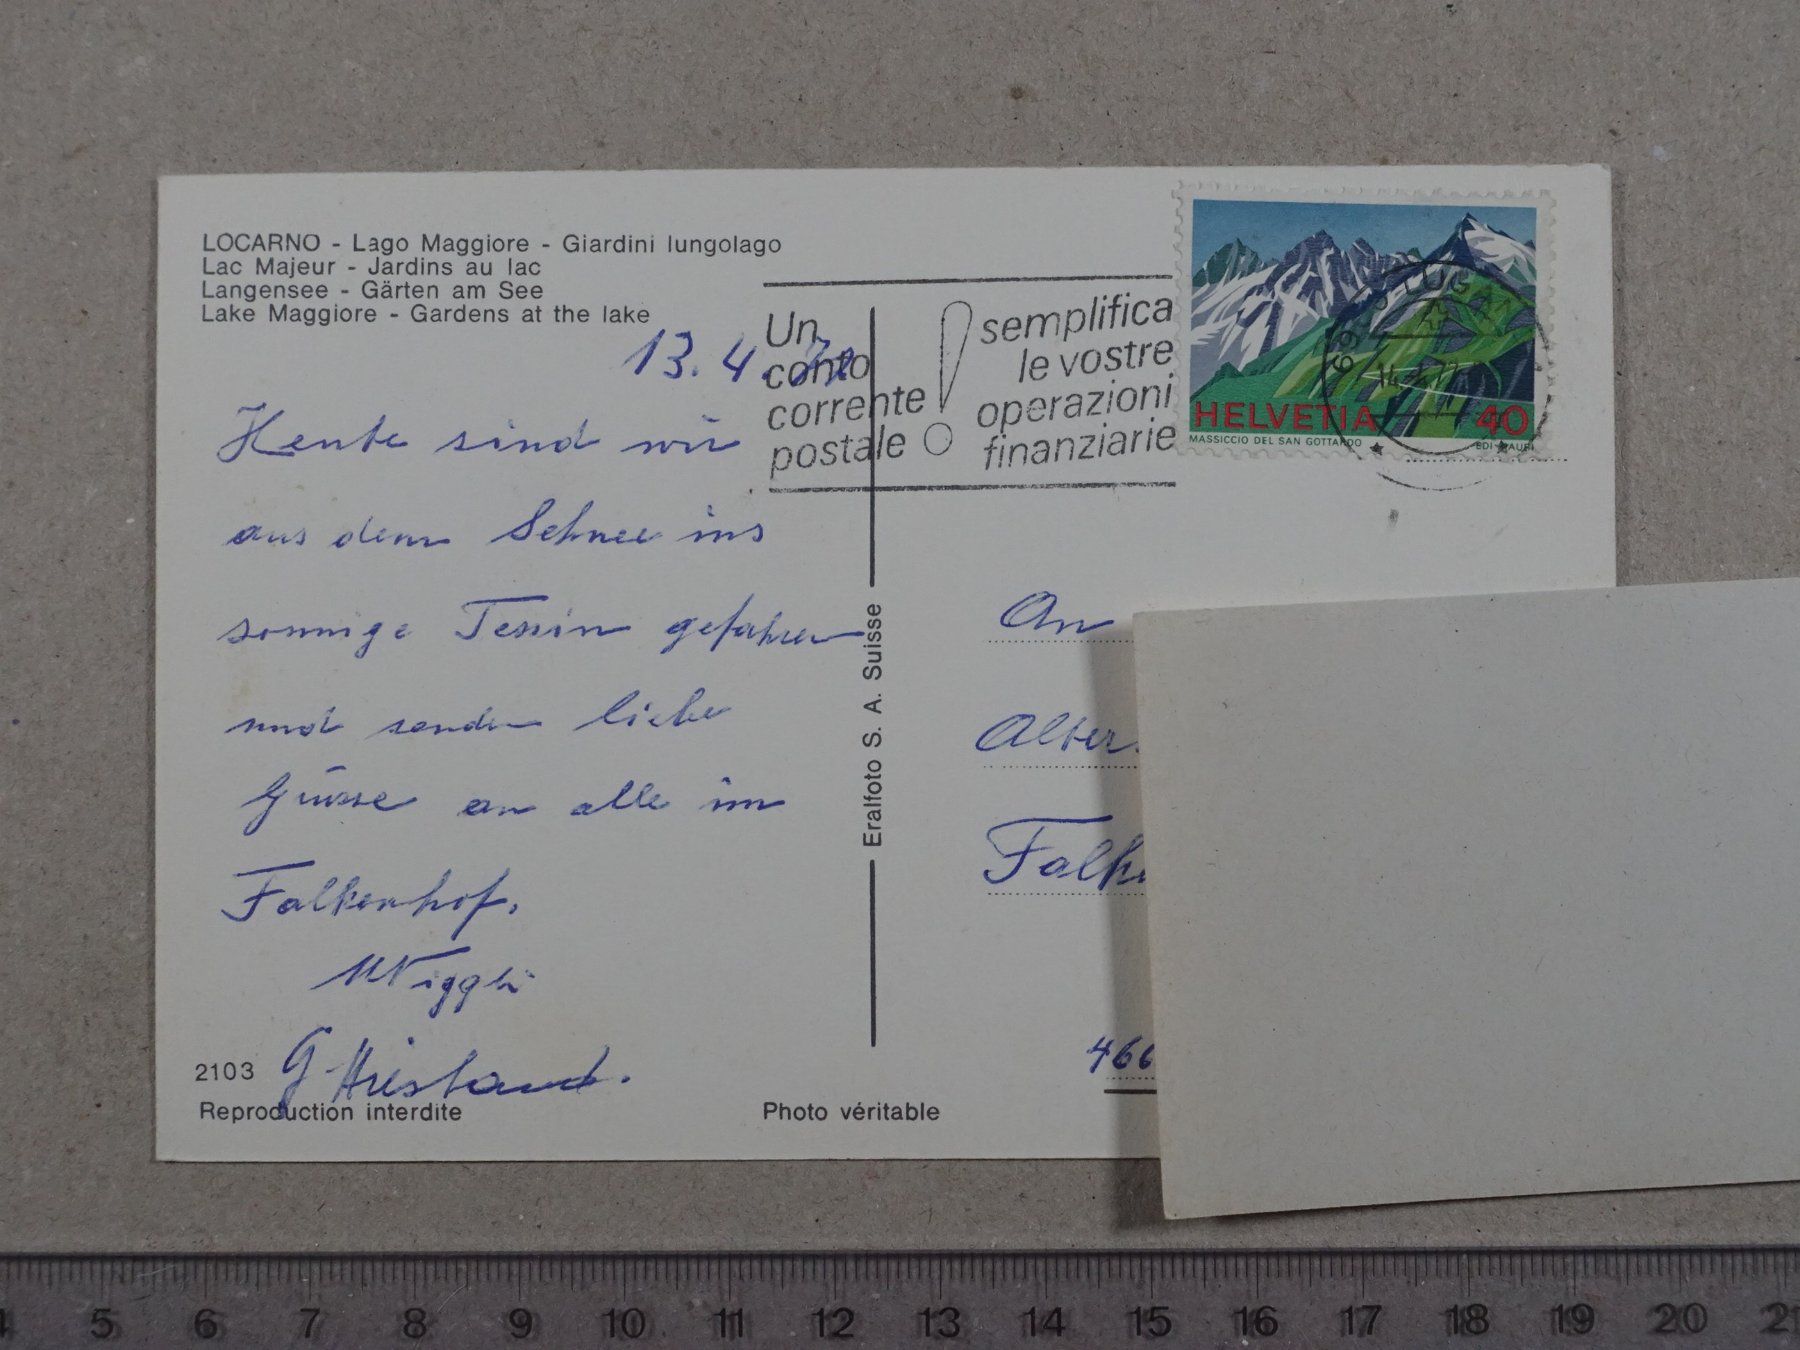 LOCARNO - Lago Maggiore - Giardini lungolago
Lac Majeur - Jardins au lac
Langensee - Gärten am See
Lake Maggiore - Gardens at the lake
13.4.
Heute sind wir
aus dem Schnee ins
sonnige Tessin gefahren
und senden liebe
Grüsse an alle im
Falkenhof.
Wiggli
G Hiestand.
2103
Reproduction interdite
Photo véritable
Eralfoto S. A. Suisse
Un
conto
corrente
postale
!
semplifica
le vostre
operazioni
finanziarie
HELVETIA 40
MASSICCIO DEL SAN GOTTARDO
EDI HAURI
An
Alter
Falk
466
4 5 6 7 8 9 10 11 12 13 14 15 16 17 18 19 20 21